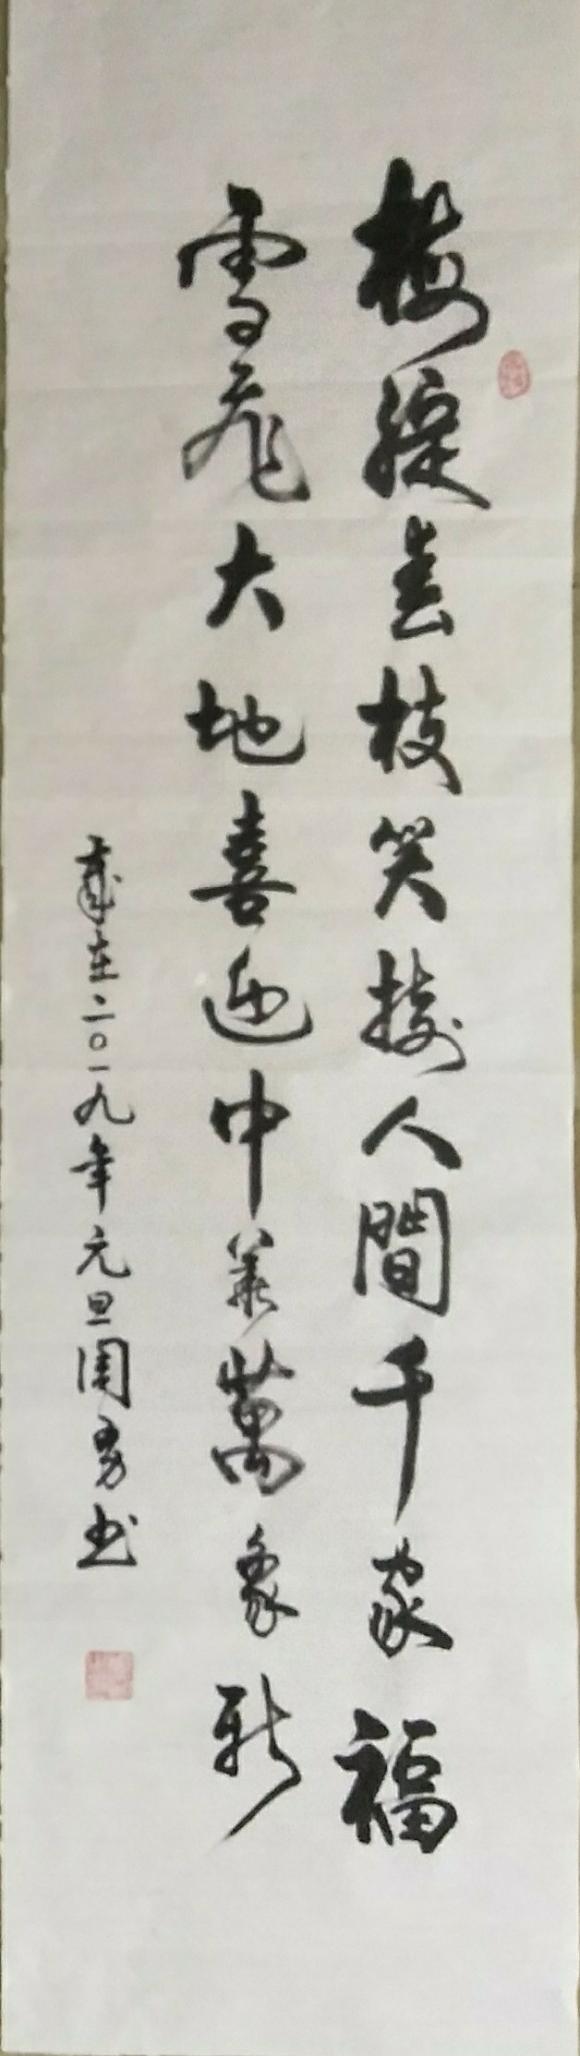 梅綻春枝笑接人間千家福
雪飛大地喜迎中華萬象新
歲在二〇一九年元旦周勇书